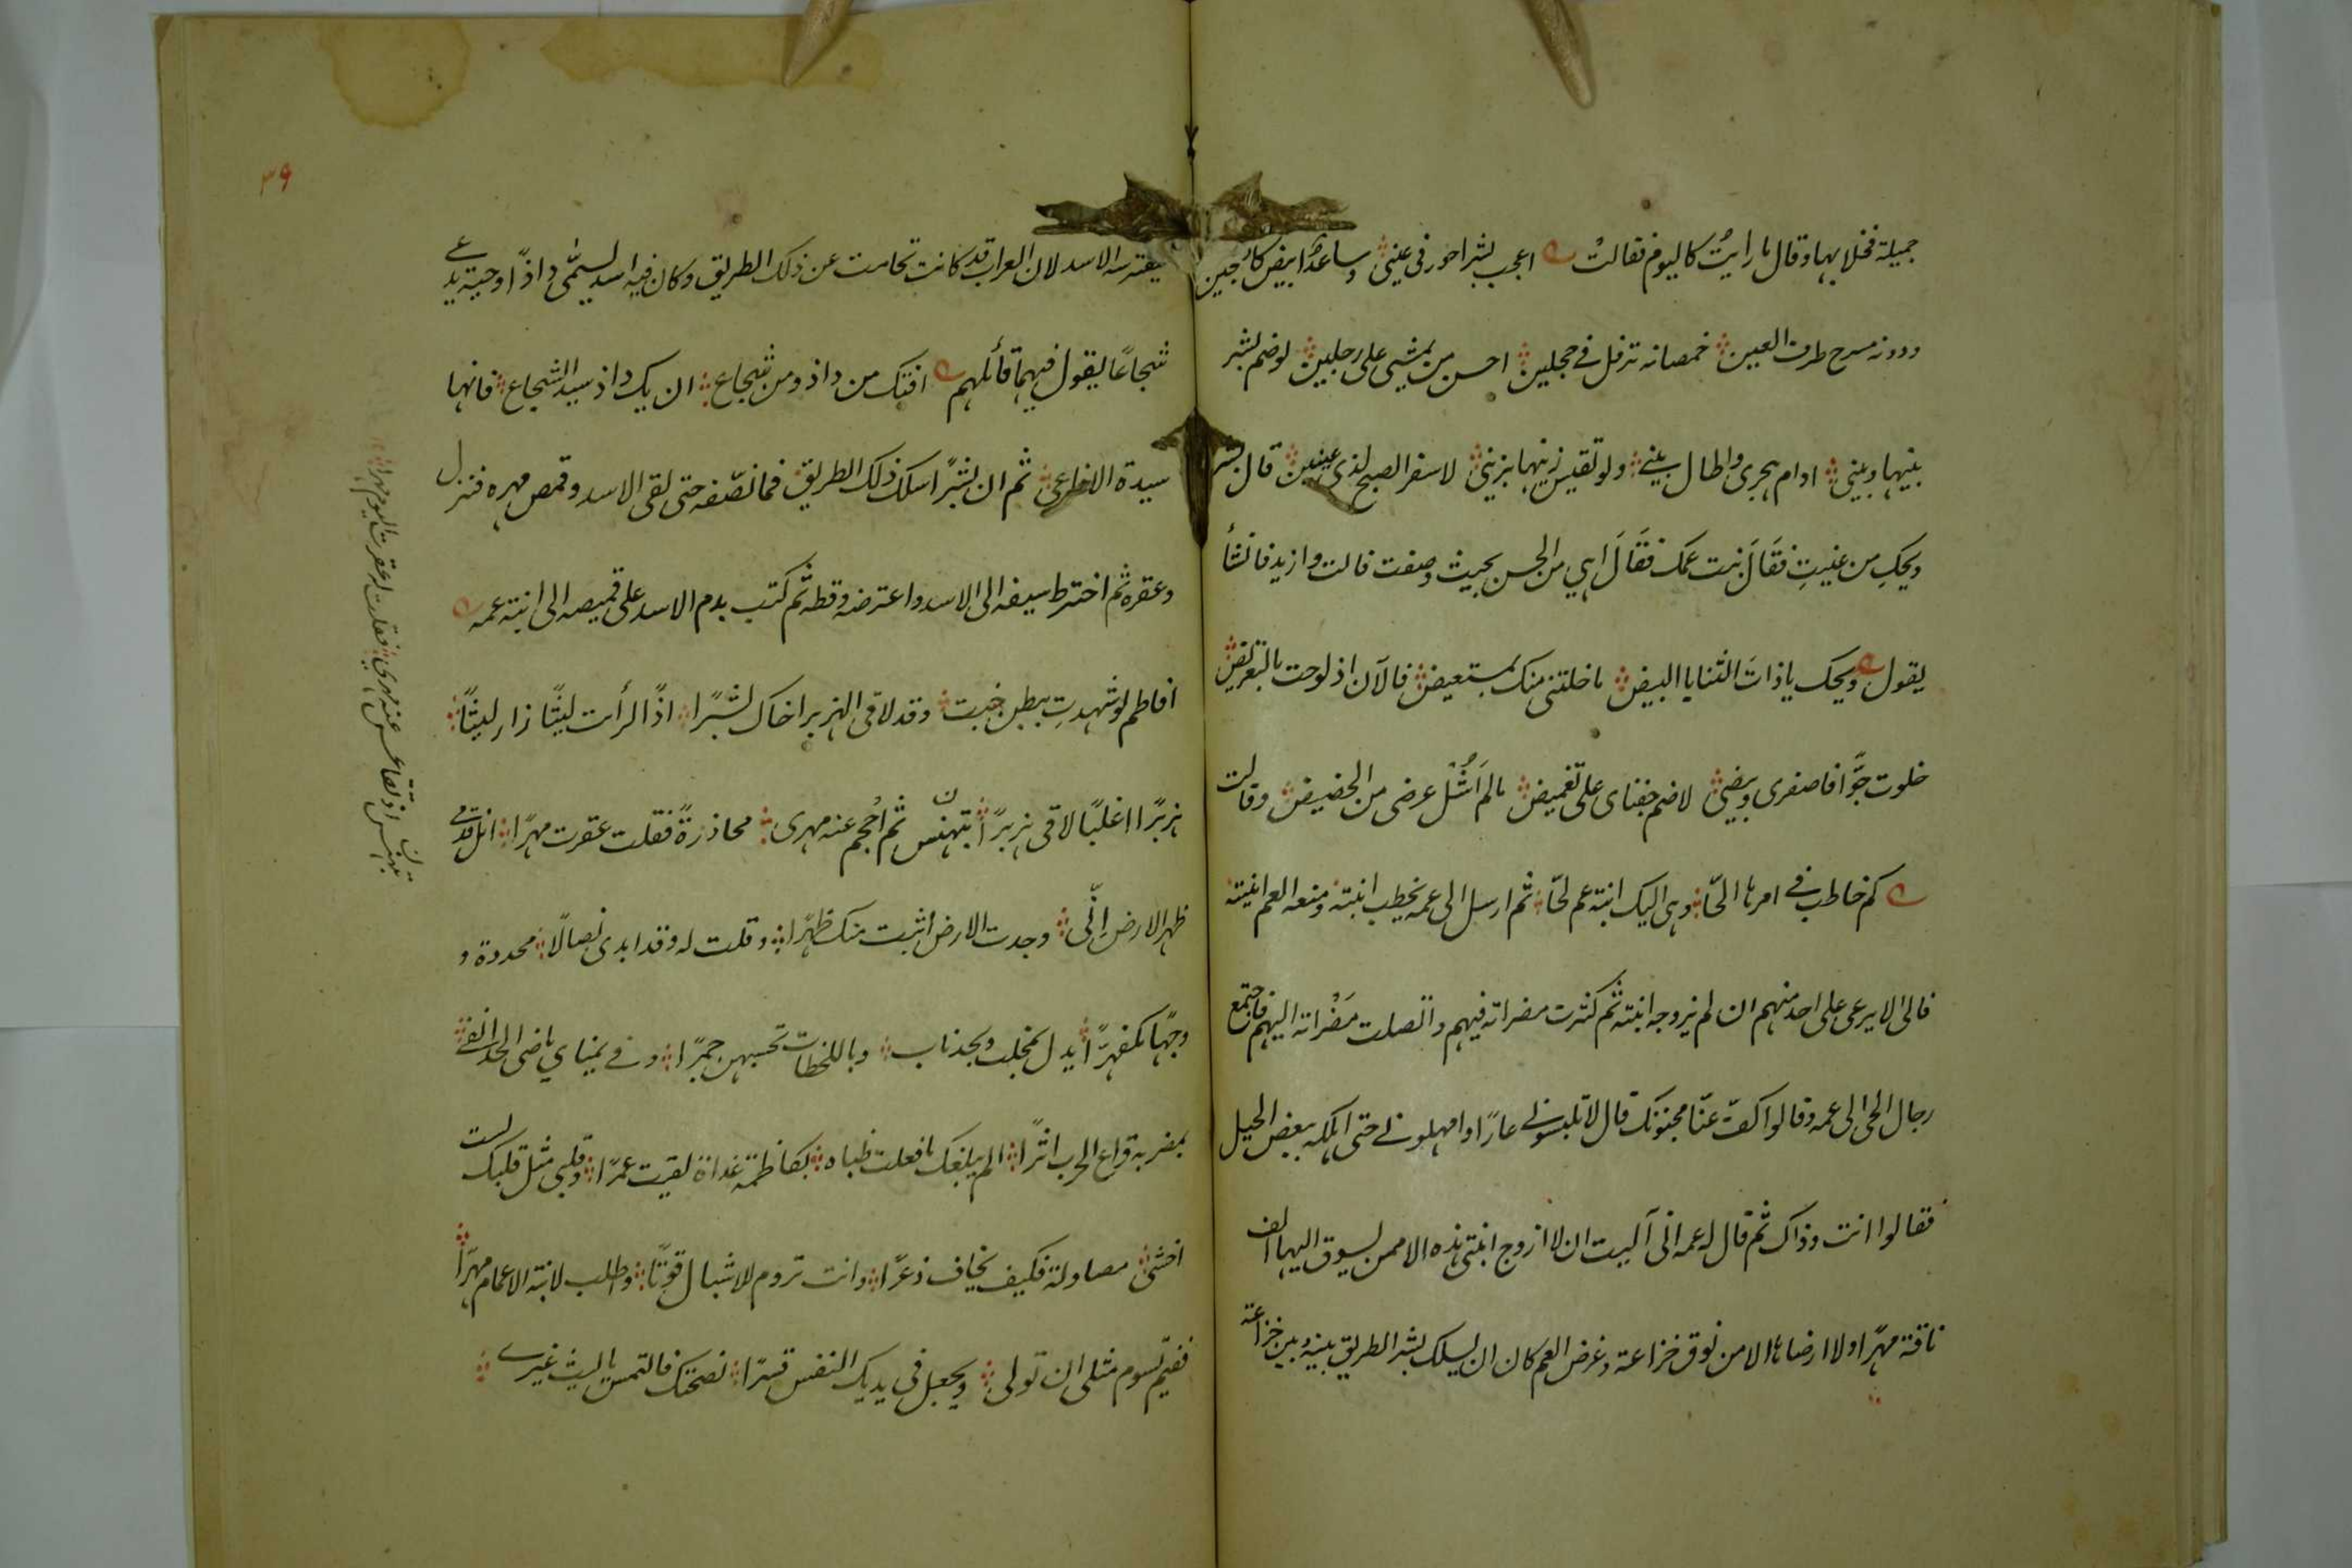 جميلة فخلا بها وقال ما رايتُ كاليوم فقالتْ اعجب بشرا حور فى عينى وساعدٌ ابيض كاللجين
ودونه مسرح طرف العين خمصانه ترفل فے حجلين احسن من يمشى على رجلين لو ضم بشر
بينها وبينى ادام هجرى واطال بينے ولو تقيس زينها بزينى لاسفر الصبح لذى عينين قال بشر
ويحكِ من عنيتِ فقَالَت بنت عمك فقَالَ اهي من الحسن بحيث وصفت قالت وازيد فانشأ
يقول ويحك ياذاتَ الثنايا البيض ما خلتنى منك بمستعيض فالآن اذ لوحت بالتعريض
خلوت جوًّا فاصفرى وبيضى لاضم جفناى على تغميض مالم اَشُلْ عرضى من الحضيض وقالت
كم خاطب فے امرها الحّا وهى اليك ابنة عم لحّا ثم ارسل الى عمه يخطب ابنته ومنعه العم ابنيته
فالى الا يرعى على احد منهم ان لم يزوجه ابنته ثم كثرت مضراته فيهم واتصلت مَضْراته اليهم فاجتمع
رجال الحى الى عمه وقالوا كفّ عنّا مجنونك قال لا تلبسونے عارًا وامهلونے حتى اهلكه ببعض الحيل
فقالوا انت وذاك ثم قال له عمه انى آليت ان لا ازوج ابنتى هذه الا ممن يسوق اليها الف
ناقة مهرًا ولا ارضاها الا من نوق خزاعة وغرض العم كان ان يسلك بشر الطريق بينه وبين خزاعة
٣٩
يفترسه الاسد لان العراب قد كانت تحامت عن ذلك الطريق وكان فيه اسد يسمّى داذًا وحية يدعے
شجاعًا يقول فيهما قائلهم افتك من داذ ومن شجاع ان يك داذ سيد الشجاع فانها
سيدة الافاعى ثم ان بشرًا سلك ذلك الطريق فما نصّفه حتى لقى الاسد وقمص مهره فنزل
وعقره ثم اخترط سيفه الى الاسد واعترضه وقطه ثم كتب بدم الاسد على قميصه الى ابنته عمه
افاطم لو شهدتِ ببطن خبت وقد لاقى الهزبر اخاك بشرًا اذًا لرأت ليثًا زار ليثًا
هزبرًا اغلبًا لاقى هزبرًا تبهنس ثم اُحجم عنه مهرى محاذرةً فقلت عقرت مهرًا انل قدمے
ظهر الارض اِنّى وجدت الارض اثبت منك ظهرًا وقلت له وقد ابدى نصالًا محددة و
وجهًا مكفهرًا يدل بمخلب وبحذناب وباللحظات تحسبهن جمرًا وفے يمناي ماضى الحد ابقے
بمضربه قراع الحرب اثرًا الم يبلغك ما فعلت ظباه بكاظمة غداة لقيت عمرًا وقلبى مثل قلبك لست
اخشى مصاولة فكيف يخاف ذعرًا وانت تروم للاشبال قوتًا وطلب لابنة الاعمام مهرًا
ففيم تسوم مثلى ان تولى ويجعل فى يديك النفس قسرًا نصحتك فالتمس ياليث غيرے
تبهنس اذ تقاعس عنه مهري فقلت له عقرت اليوم مهرا